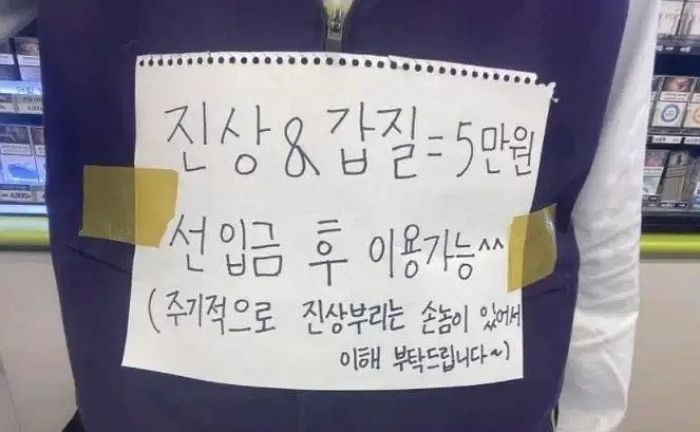 진상 & 갑질 = 5만원
선입금 후 이용가능^^
(주기적으로 진상부리는 손놈이 있어서
이해 부탁드립니다~)